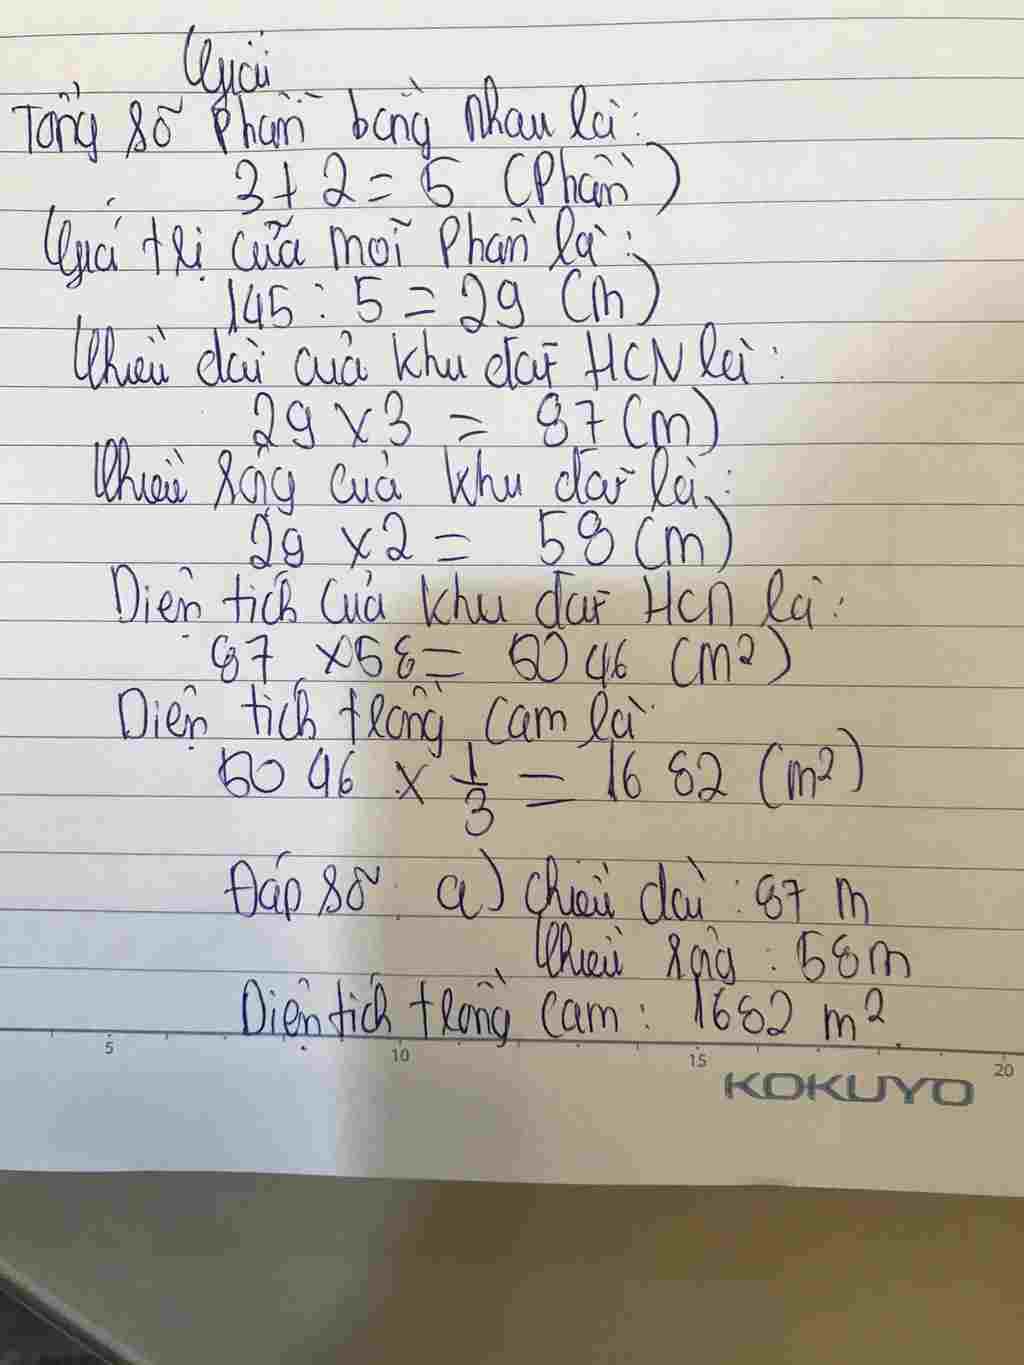 Giải
Tổng số phần bằng nhau là:
3 + 2 = 5 (Phần)
Giá trị của mỗi phần là:
145 : 5 = 29 (m)
Chiều dài của khu đất HCN là:
29 x 3 = 87 (m)
Chiều rộng của khu đất là:
29 x 2 = 58 (m)
Diện tích của khu đất HCN là:
87 x 58 = 5046 (m²)
Diện tích trồng cam là
5046 x 1/3 = 1682 (m²)
Đáp số: a) chiều dài: 87 m
Chiều rộng: 58m
Diện tích trồng cam: 1682 m²
5 10 15 20
KOKUYO